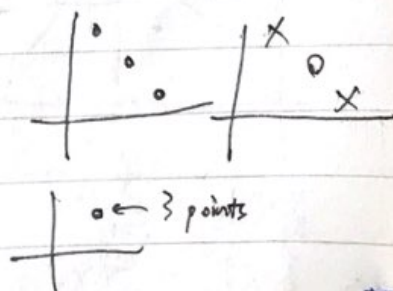 ← 3 points